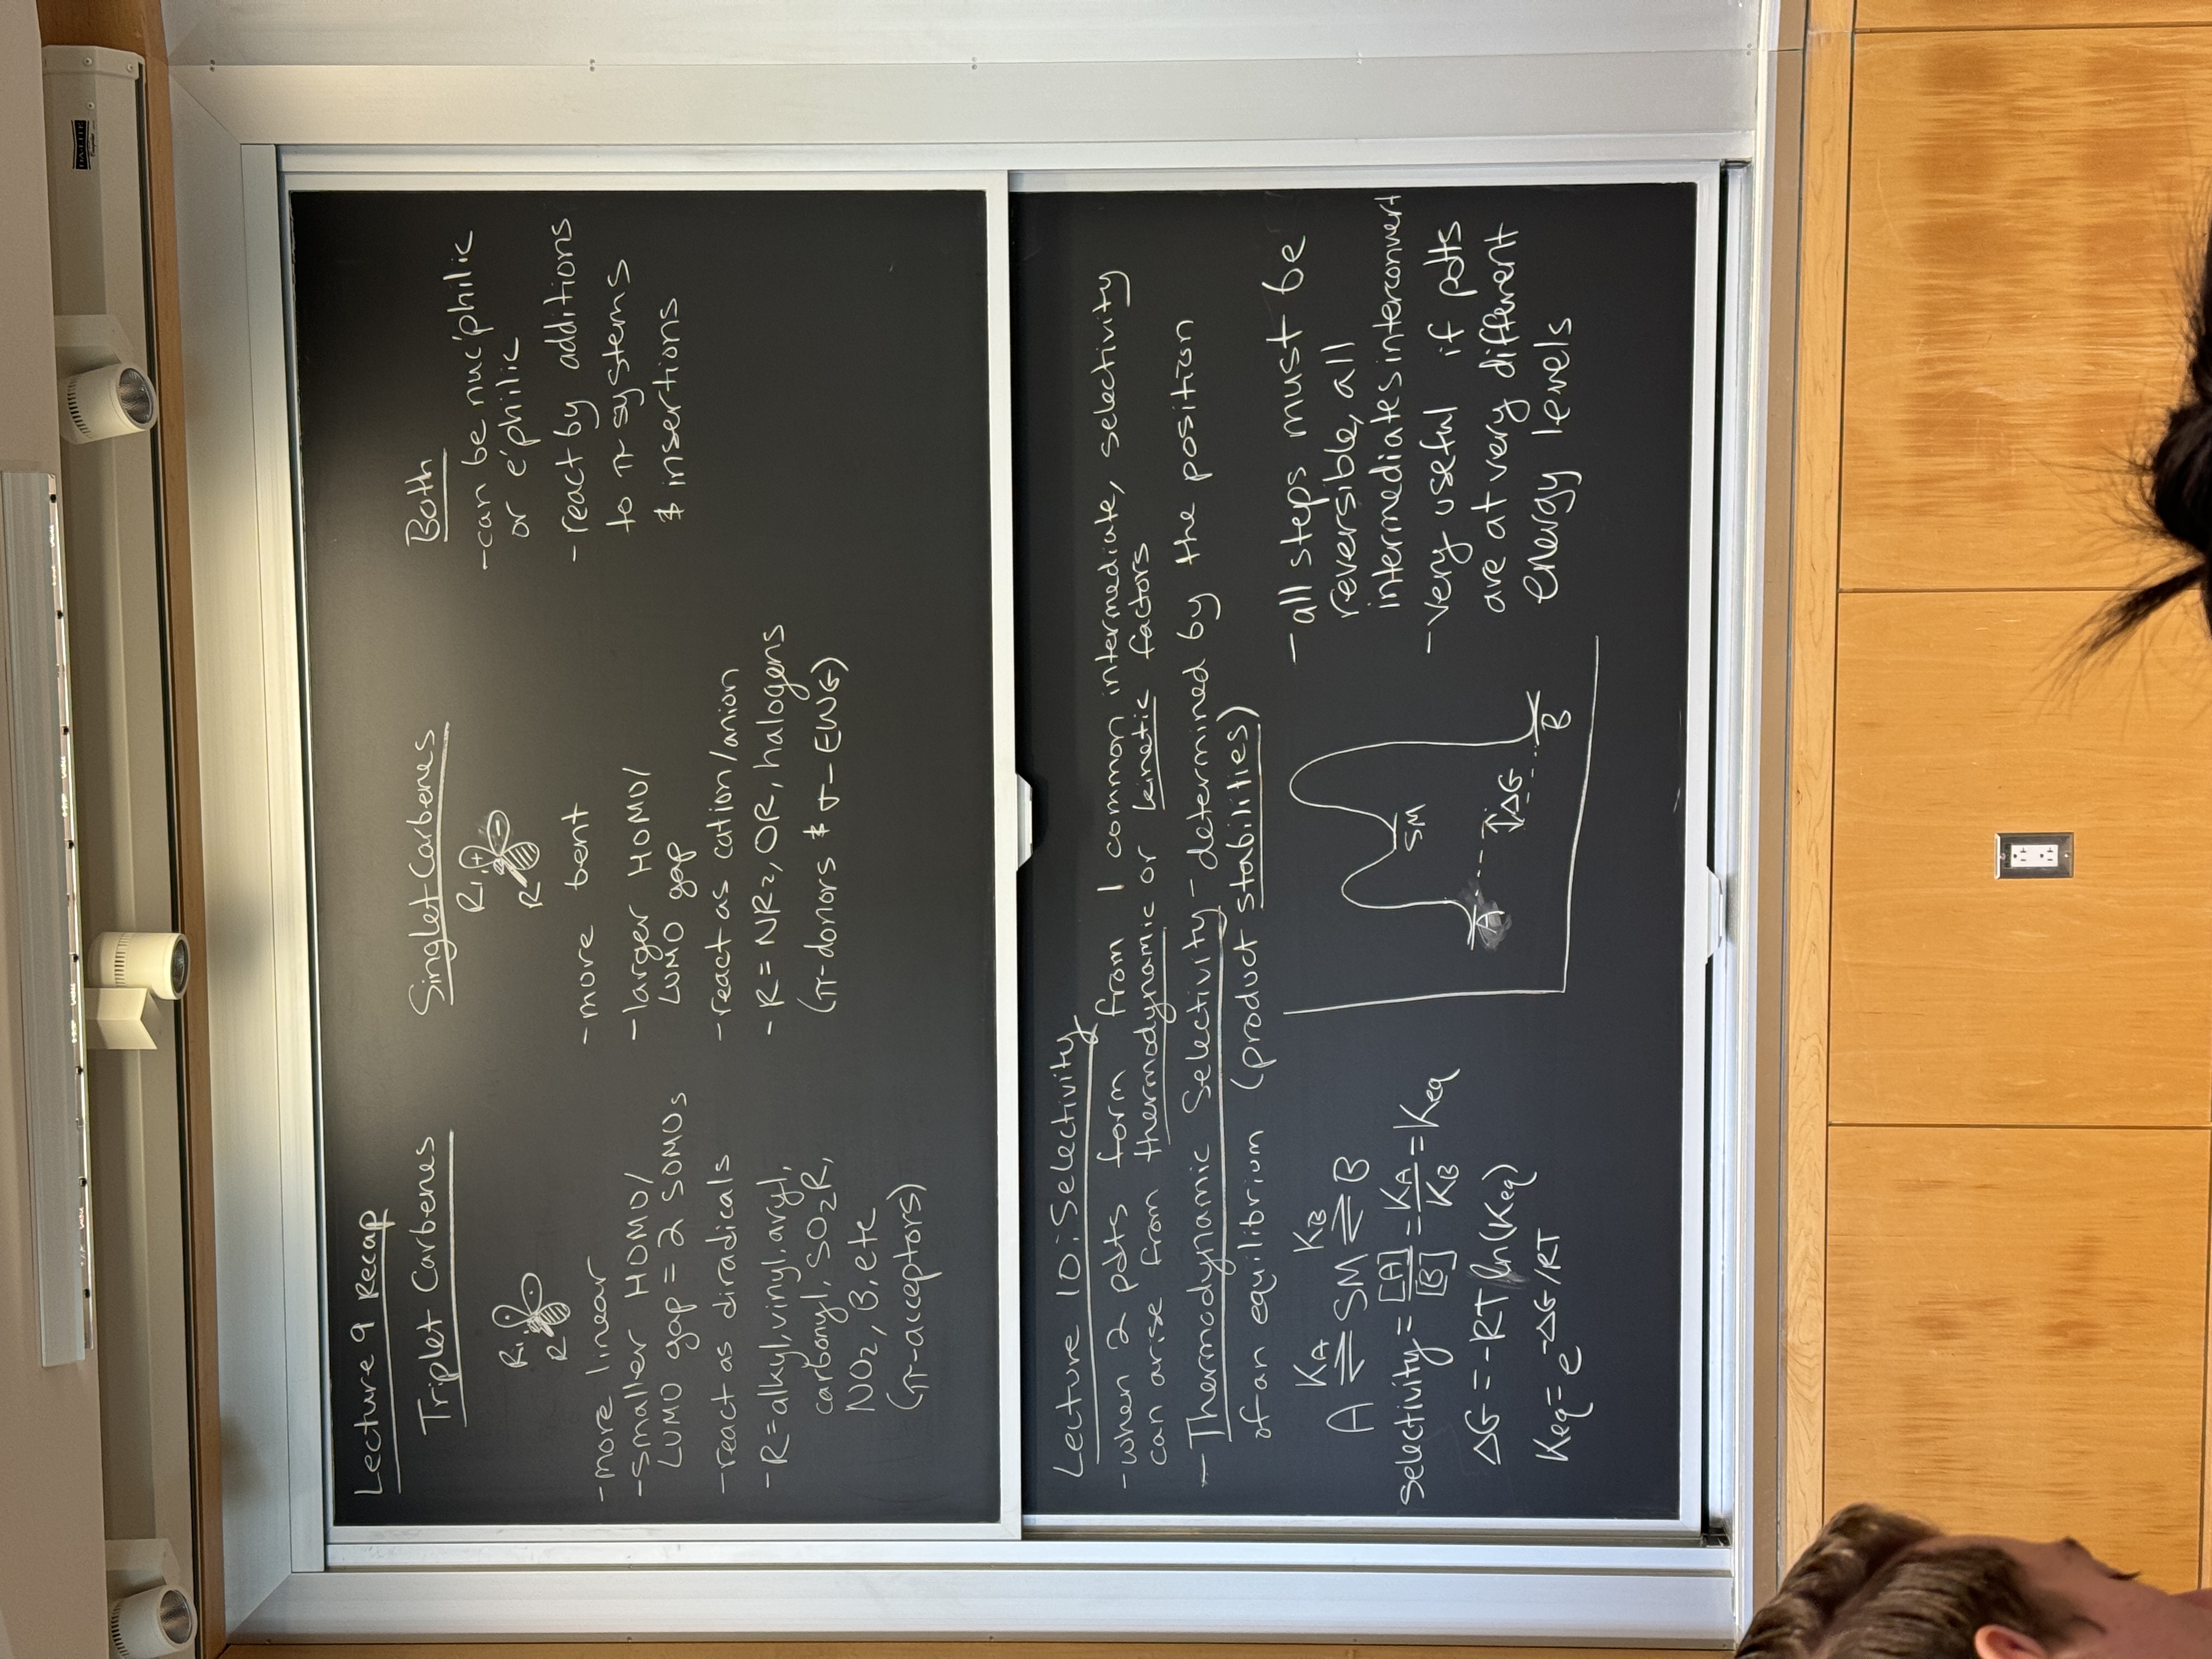 DA-LITE
Lecture 9 Recap
Triplet Carbenes
R
R
-more linear
-smaller HOMO/
LUMO gap = 2 SOMOs
-react as diradicals
-R=alkyl, vinyl, aryl,
carbonyl, SO₂R,
NO₂, B, etc
(π-acceptors)
Singlet Carbenes
R
+
-
R
-more bent
-larger HOMO/
LUMO gap
-react as cation/anion
-R = NR₂, OR, halogens
(π-donors & σ-EWG)
Both
-can be nuc'philic
or e'philic
-react by additions
to π systems
& insertions
Lecture 10: Selectivity
-when 2 pdts form from 1 common intermediate, selectivity
can arise from thermodynamic or kinetic factors
-Thermodynamic Selectivity - determined by the position
of an equilibrium (product stabilities)
K_A K_B
A ⇌ SM ⇌ B
selectivity = [A]/[B] = K_A/K_B = Keq
ΔG = -RT ln(Keq)
Keq = e^-ΔG/RT
SM
A
ΔG
B
-all steps must be
reversible, all
intermediates interconvert
-very useful if pdts
are at very different
energy levels